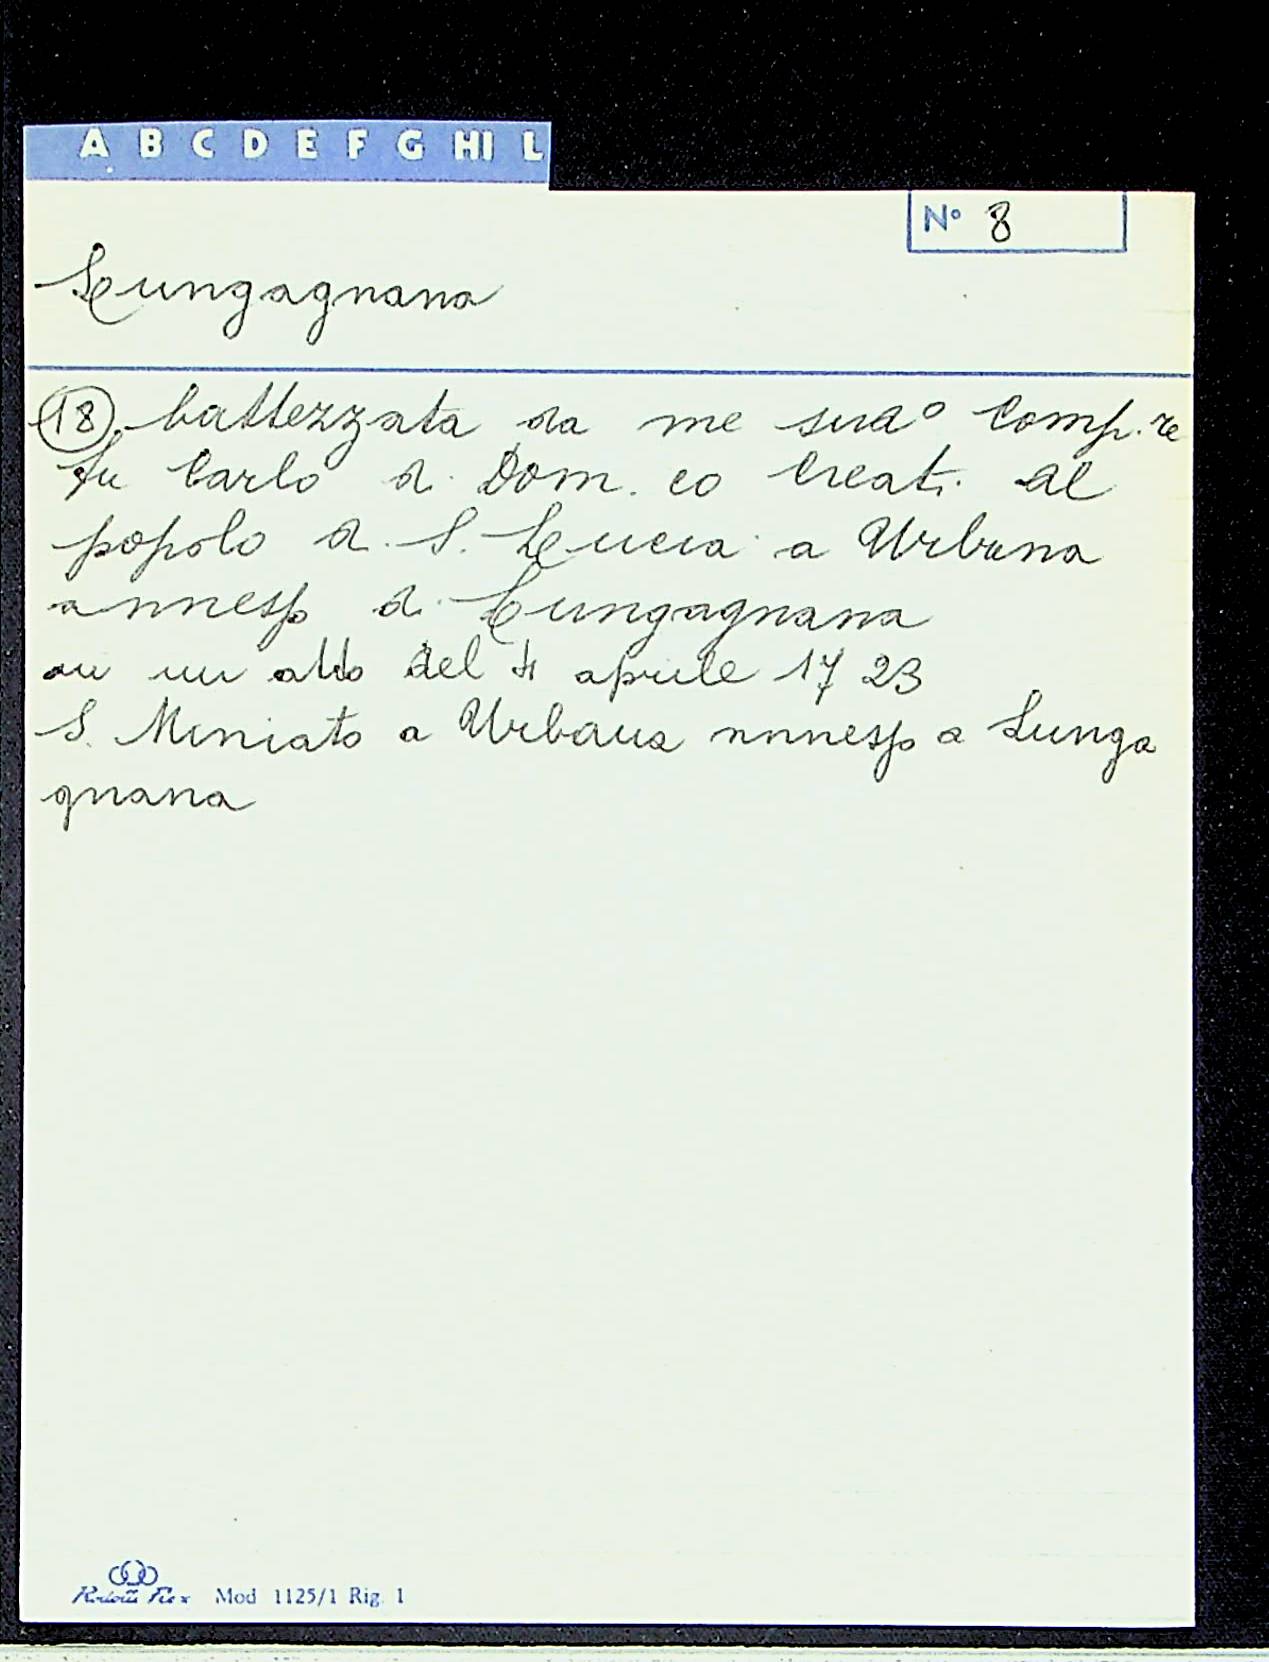 A B C D E F G HI L
N° 8
Lungagnana
(18) battezzata da me sudº Comp.re
fu Carlo di Dom.co Creati al
popolo di S. Lucia a Urbana
annesso di Lungagnana
in un atto del 4 aprile 1723
S. Miniato a Urbana annesso a Lunga
gnana
Mod 1125/1 Rig. 1